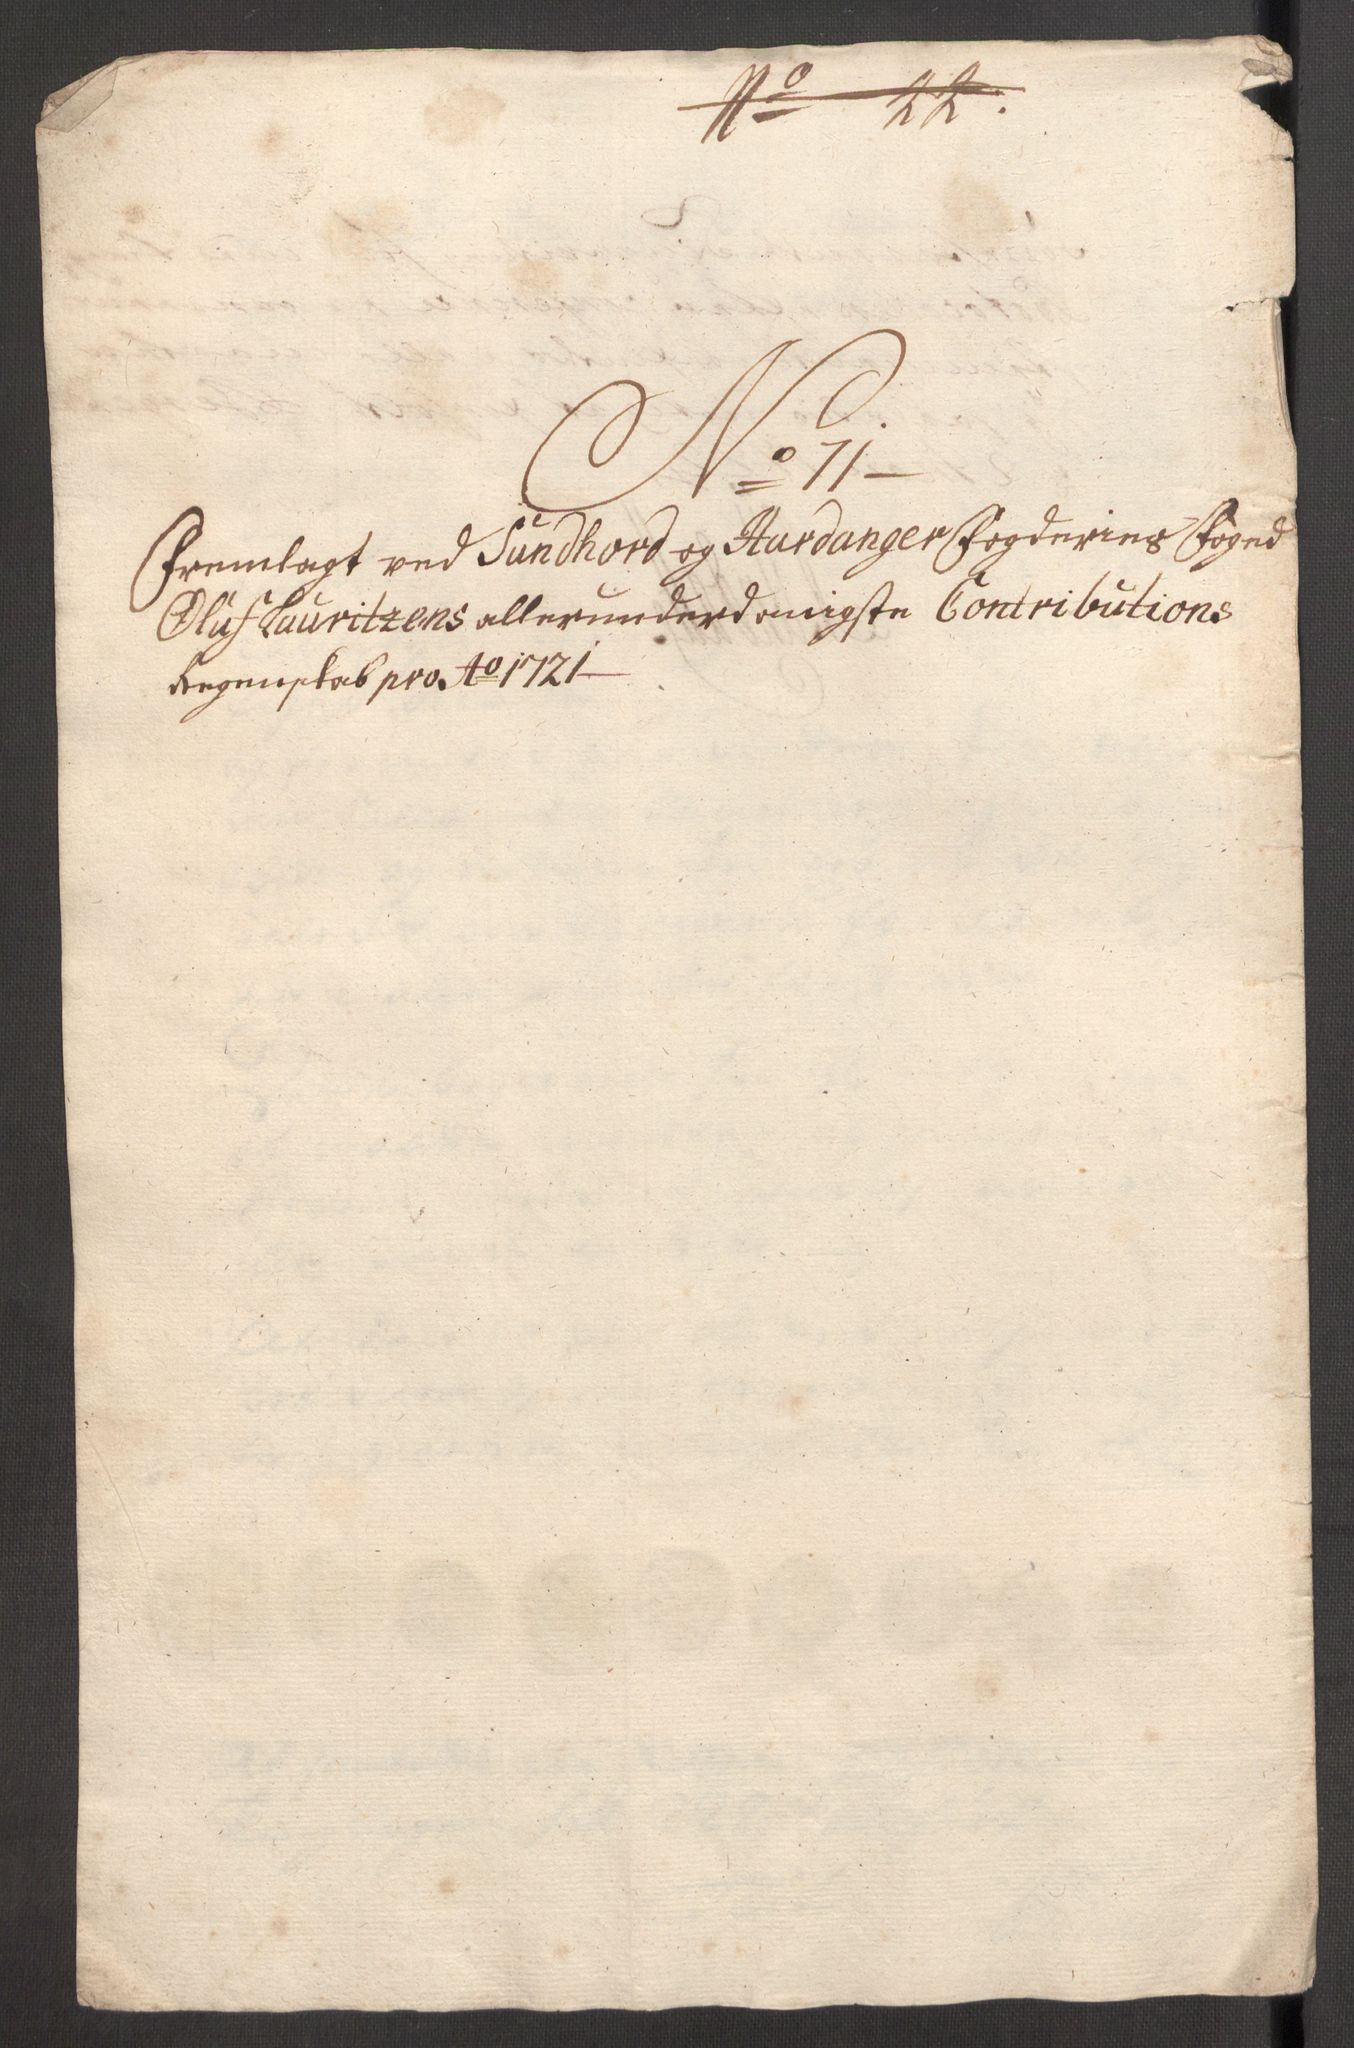 No 22.
No 71
Fremlagt ved Sundhord og Hardanger Fogderies Foged
Oluf Lauritzens allerunderdanigste Contributions
Regenskab pro Ao 1721